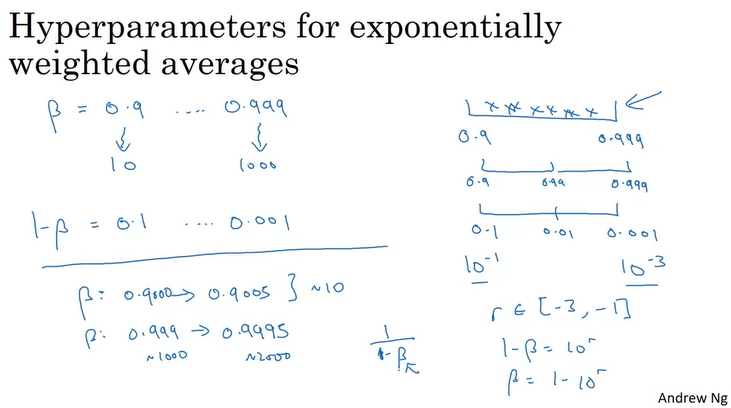 Hyperparameters for exponentially
weighted averages
β = 0.9 .... 0.999
10 1000
1-β = 0.1 .... 0.001
β: 0.9000 → 0.9005 } ~10
β: 0.999 → 0.9995
~1000 ~2000
1
1-β
x x x x x x
0.9 0.999
0.9 0.99 0.999
0.1 0.01 0.001
10⁻¹ 10⁻³
r ∈ [-3, -1]
1-β = 10ʳ
β = 1-10ʳ
Andrew Ng